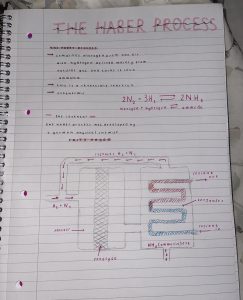 THE HABER PROCESS
THE HABER PROCESS
→ combines nitrogen from the air
with hydrogen derived mainly from
natural gas and
→ this is a reversible reaction
→ exothermic
2N₂ + 3H₂ ⇌ 2NH₃
nitrogen + hydrogen ⇌ ammonia
→ the inventor
the haber process was developed by
a german
FRITZ HABER
recycled H₂ + N₂
H₂ + N₂
reactor
catalyst
condenser